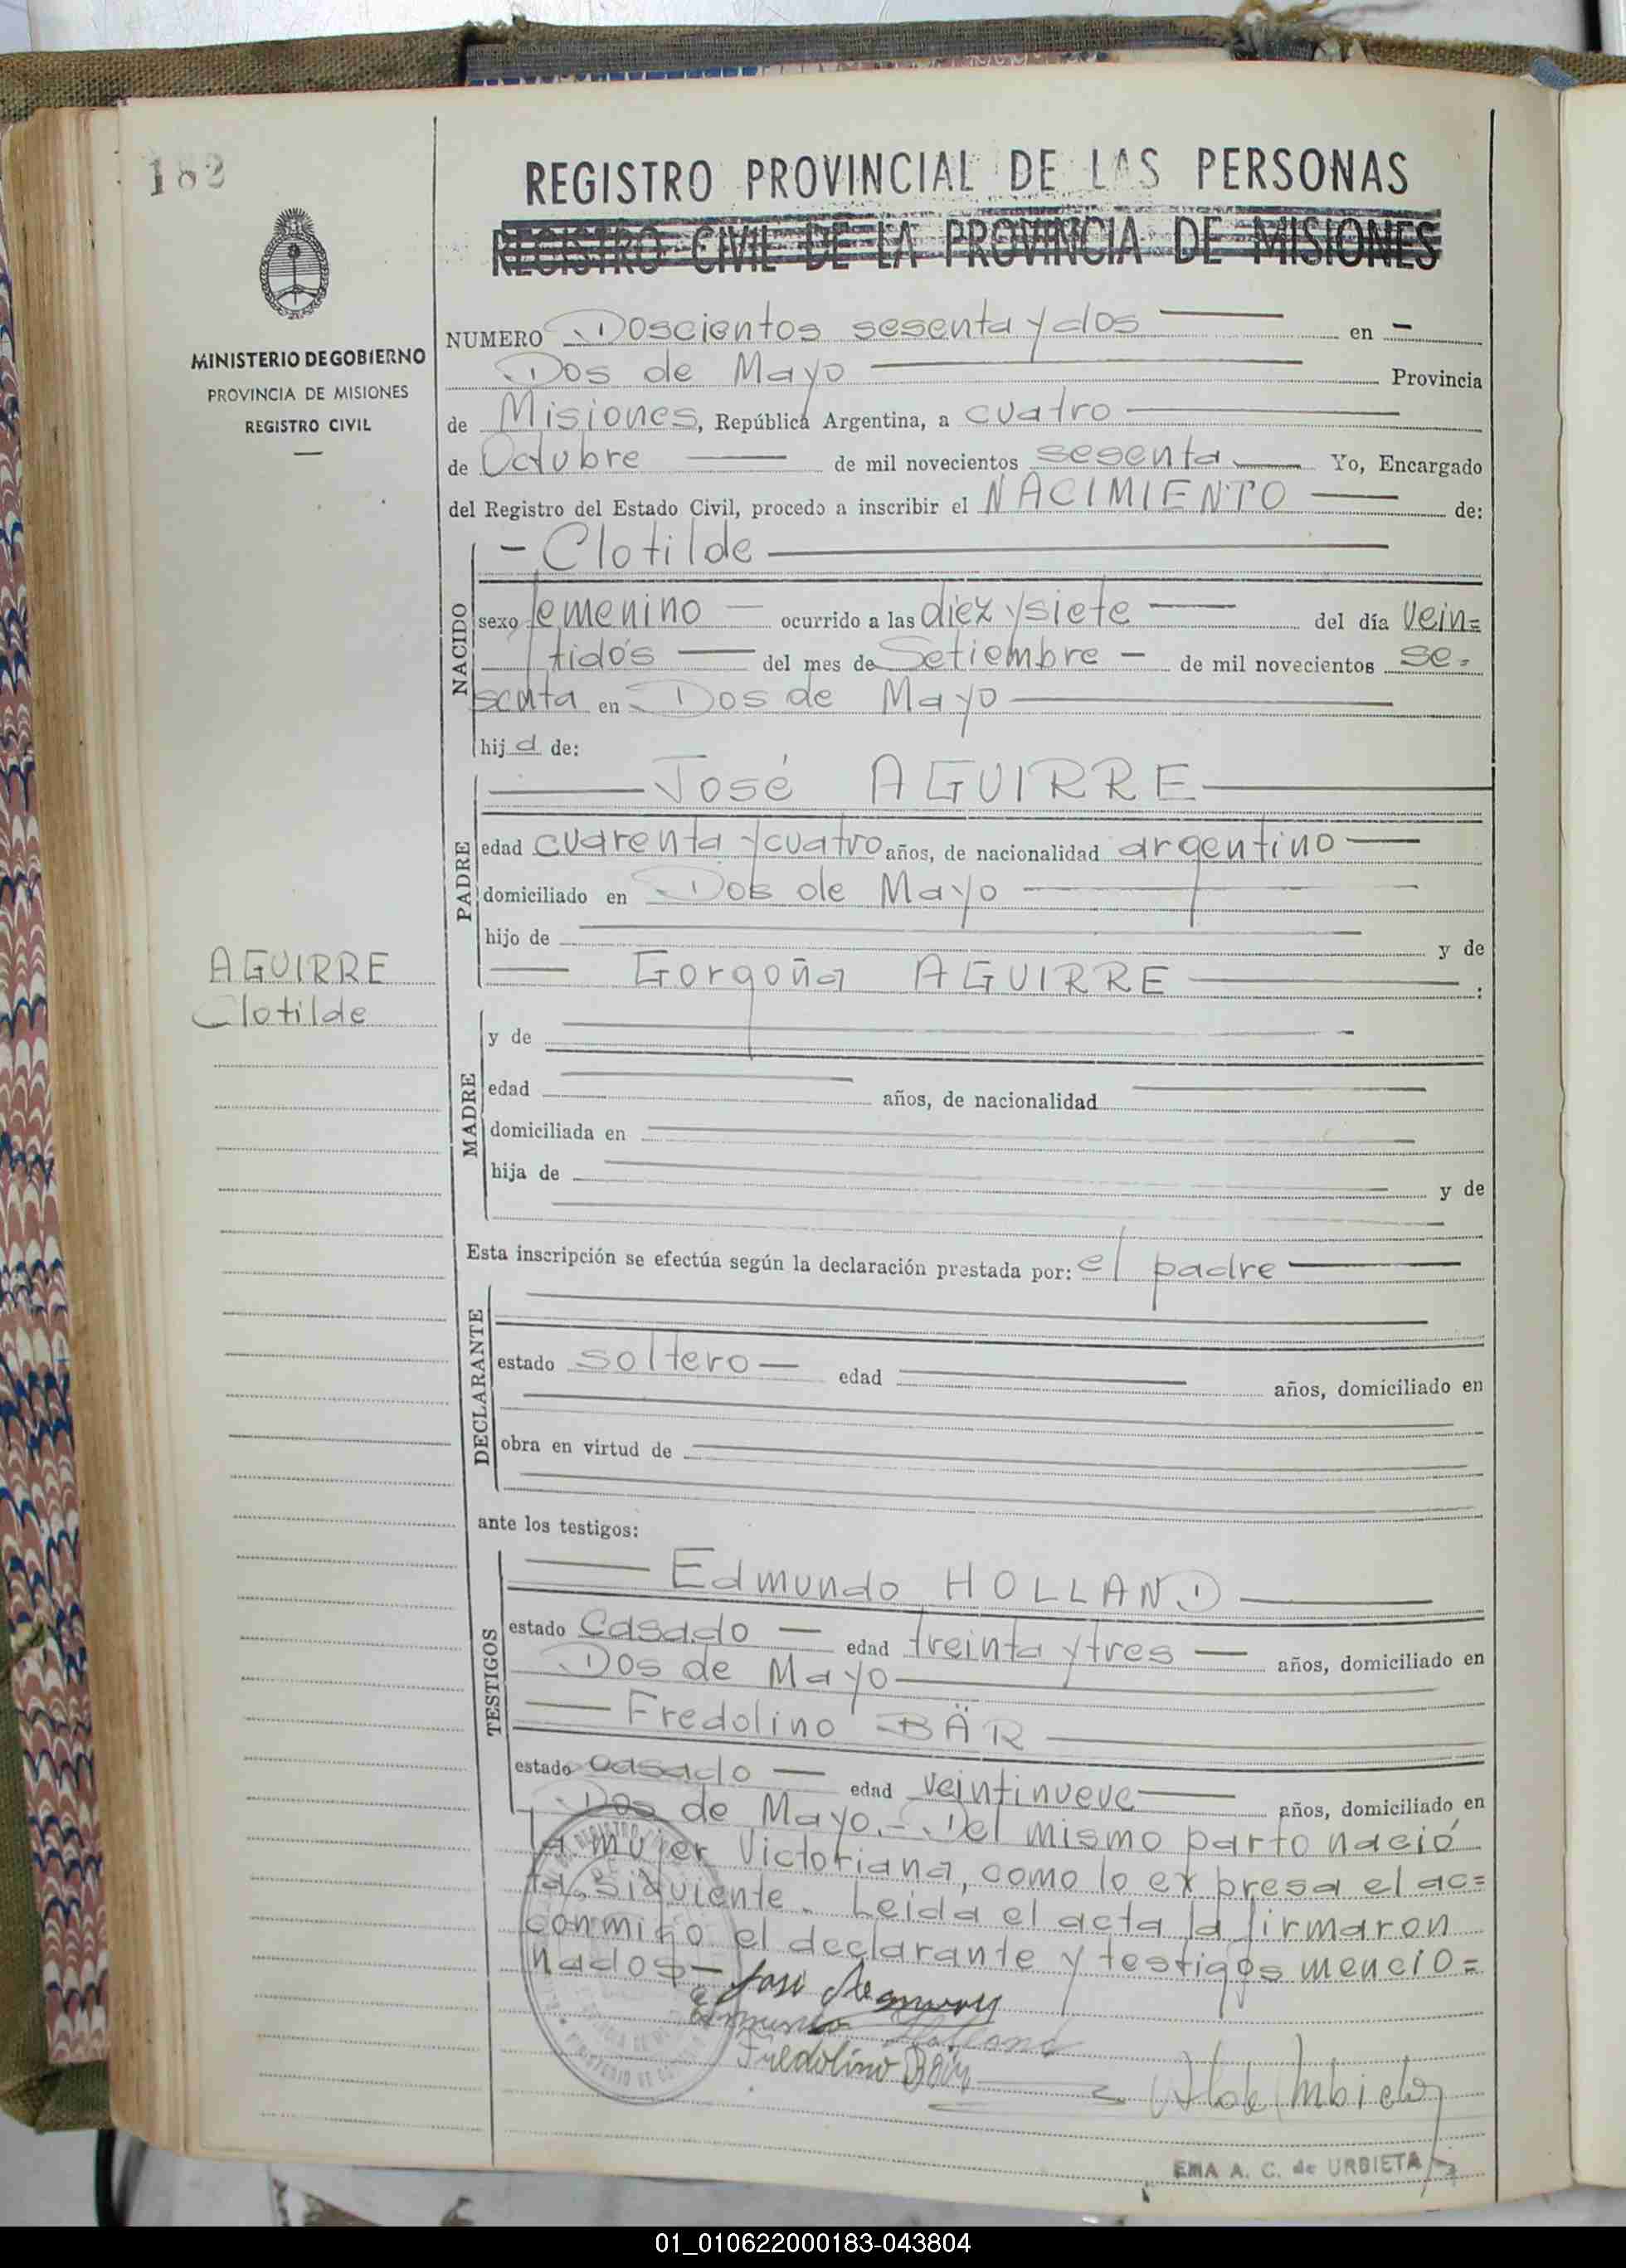 182
REGISTRO PROVINCIAL DE LAS PERSONAS
REGISTRO CIVIL DE LA PROVINCIA DE MISIONES
MINISTERIO DE GOBIERNO
PROVINCIA DE MISIONES
REGISTRO CIVIL
NUMERO Doscientos sesenta y dos en
Dos de Mayo Provincia
de Misiones, República Argentina, a cuatro
de Octubre de mil novecientos sesenta Yo, Encargado
del Registro del Estado Civil, procedo a inscribir el NACIMIENTO de:
NACIDO
- Clotilde
sexo femenino ocurrido a las diez y siete del día vein=
tidós del mes de Setiembre - de mil novecientos se=
senta en Dos de Mayo
hij a de:
PADRE
José AGUIRRE
edad cuarenta y cuatro años, de nacionalidad argentino
domiciliado en Dos de Mayo
hijo de y de
Gorgoña AGUIRRE :
AGUIRRE
Clotilde
MADRE
y de
edad años, de nacionalidad
domiciliada en
hija de y de
Esta inscripción se efectúa según la declaración prestada por: el padre
DECLARANTE
estado soltero edad años, domiciliado en
obra en virtud de
ante los testigos:
TESTIGOS
Edmundo HOLLAND
estado casado edad treinta y tres años, domiciliado en
Dos de Mayo
Fredolino BÄR
estado casado edad veintinueve años, domiciliado en
Dos de Mayo.- Del mismo parto nació
la mujer Victoriana, como lo expresa el ac=
ta siguiente. Leida el acta la firmaron
conmigo el declarante y testigos mencio=
nados-
José
Holland
Fredolino Bär
EMA A. C. de URBIETA
01_010622000183-043804